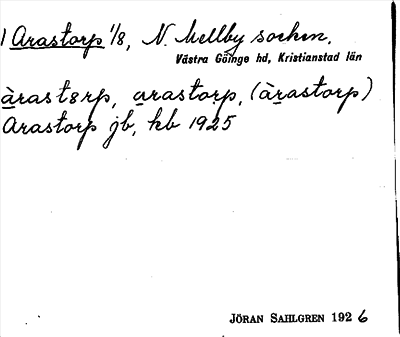 1 Arastorp 1/8, N. Mellby socken.
Västra Göinge hd, Kristianstad län
àrastɜrp, arastorp, (àrastorp)
Arastorp jb, kb 1925
JÖRAN SAHLGREN 1926